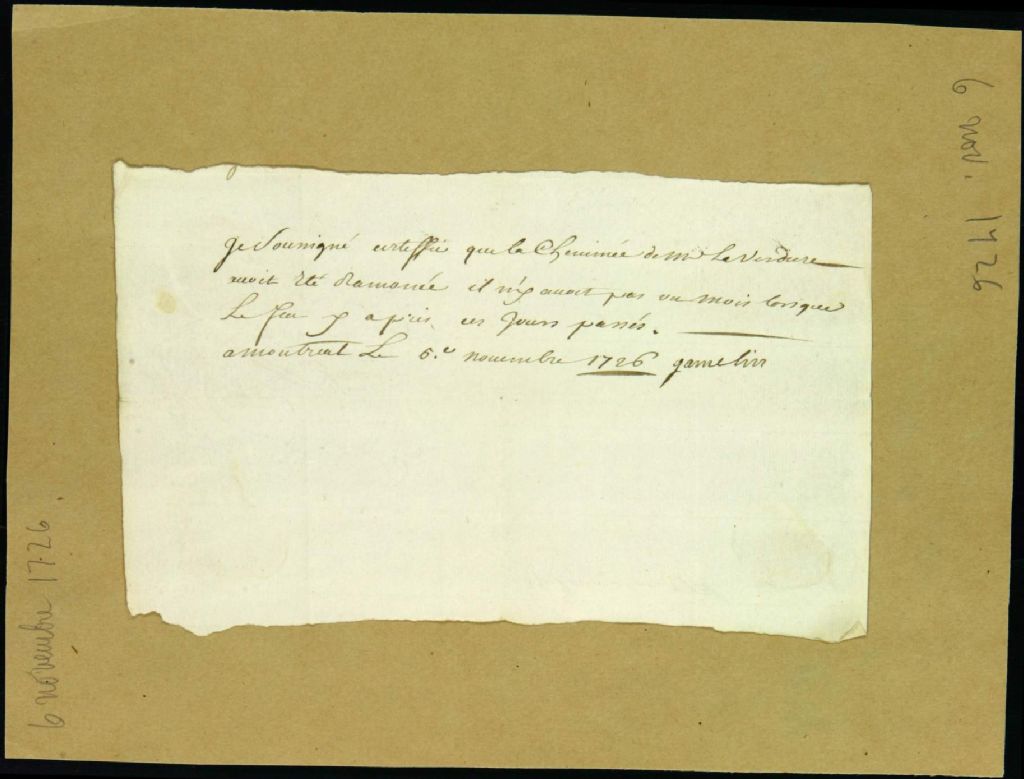 Je Soussigné certeffie que la Cheminée de Mr La Verdure
avoit été Ramonée il n'y avoit pas un mois lorsque
Le feu y a pris ces Jours passés.
a montreal Le 6.e novembre 1726 gamelin
6 nov. 1726
6 novembre 1726